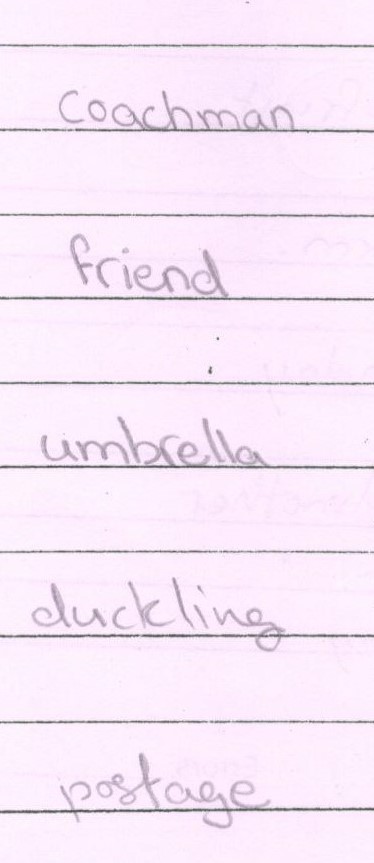 Coachman
friend
umbrella
duckling
postage